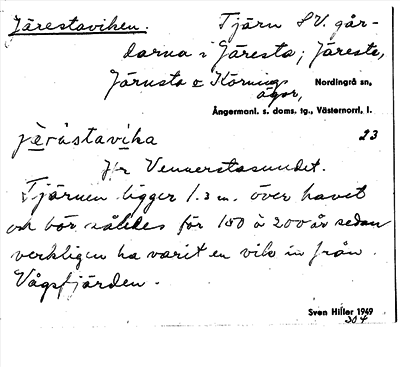 Järestaviken. Tjärn S V. går-
darna i Järesta; Järeste,
Järnsta o Körnings Nordingrå sn,
ägor,
Ångermanl. s. doms. tg., Västernorrl. l.
jè̱rästavi̱ka 23
Jfr Vennerstasundet.
Tjärnen ligger 1.3 m. över havet
och bör således för 150 à 200 år sedan
verkligen ha varit en vik in från
Vågsfjärden.
Sven Hiller 1949
304